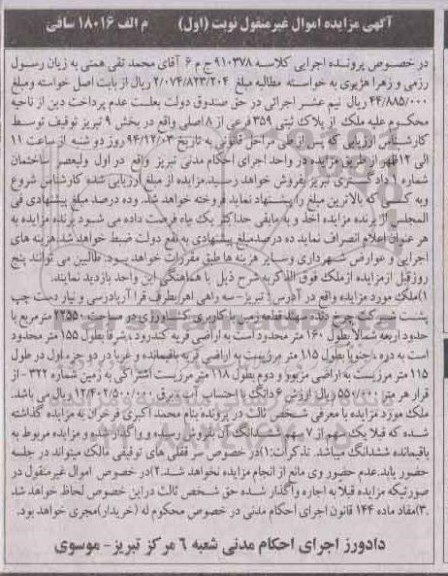 آگهی مزایده اموال غیرمنقول نوبت (اول) م الف ۱۸۰۱۶ سافی
در خصوص پرونده اجرایی کلاسه ۹۱۰۳۷۸ ج م ۶ آقای محمد تقی همتی به زیان رسول
رزمی و زهرا هژبوی به خواسته مطالبه مبلغ ۲/۰۷۴/۸۲۳/۲۰۴ ریال از بابت اصل خواسته ومبلغ
۴۴/۸۸۵/۰۰۰ ریال نیم عشر اجرائی در حق صندوق دولت بعلت عدم پرداخت دین از ناحیه
محکوم علیه ملک از پلاک ثبتی ۳۵۹ فرعی از ۸ اصلی واقع در بخش ۹ تبریز توقیف توسط
کارشناس ارزیابی که پس از طی مراحل قانونی به تاریخ ۹۴/۱۲/۰۳ روز دو شنبه از ساعت ۱۱
الی ۱۲ ظهر از طریق مزایده در واحد اجرای احکام مدنی تبریز واقع در اول ولیعصر ساختمان
شماره ۱ دادگستری تبریز بفروش خواهد رسید.مزایده از مبلغ ارزیابی شده کارشناس شروع
وبه کسی که بالاترین مبلغ را پیشنهاد نماید فروخته خواهد شد. وده درصد مبلغ پیشنهادی فی
المجلس از برنده مزایده اخذ و به مابقی حداکثر یک ماه فرصت داده می شود برنده مزایده به
هر عنوان اعلام انصراف نماید ده درصدمبلغ پیشنهادی به نفع دولت ضبط خواهد شد.هزینه های
اجرایی و عوارض شهرداری وسایر هزینه ها طبق مقررات خواهد بود. طالبین می توانند پنج
روزقبل ازمزایده ازملک فوق الذکربه شرح ذیل با هماهنگی این واحد بازدید نمایند.
۱)ملک مورد مزایده واقع در آدرس: تبریز- سه راهی اهربطرف قرا آربادرسی و نیار دست چپ
پشت شرکت چرخ دنده سهند قطعه زمین با کاربری کشاورزی در مساحت ۲۲۵۵۰ مترمربع با
حدود اربعه شمالاً بطول ۱۶۰ متر محدود است به اراضی قریه کندرود ،شرقاً بطول ۱۵۵ متر محدود
است به دره ،جنوباً بطول ۱۱۵ متر مرزیست به اراضی قریه باقیمانده و غرباً در دو جزء اول در طول
۱۱۵ متر مرزیست به اراضی مزبور و دوم بطول ۱۱۸ متر مرزیست اشتراکی به زمین شماره ۳۲۲ - از
قرار هر متر ۵۵۰/۰۰۰ ریال ارزش ۶ دانگ با احتساب آب، برق ۱۲/۴۰۲/۵۰۰/۰۰۰ ریال می باشد.
ملک مورد مزایده با معرفی شخص ثالث در پرونده بنام محمد اکبری فرخران به مزایده گذاشته
شده که قبلا یک سهم از ۷ سهم ششدانگ آن بفروش رسیده و واگذار شده و مزایده مربوط به
باقیمانده ششدانگ میباشد. تذکرات:۱)در خصوص سر قفلی های توقیفی مالک میتواند در جلسه
حضور یابد.عدم حضور وی مانع از انجام مزایده نخواهد شد.۲)در خصوص اموال غیرمنقول در
صورتیکه مزایده قبلا به اجاره واگذار شده حق شخص ثالث دراین خصوص لحاظ خواهد شد
۳.)مفاد ماده ۱۴۴ قانون اجرای احکام مدنی در خصوص محکوم له (خریدار)مجری خواهد بود.
دادورز اجرای احکام مدنی شعبه ۶ مرکز تبریز- موسوی